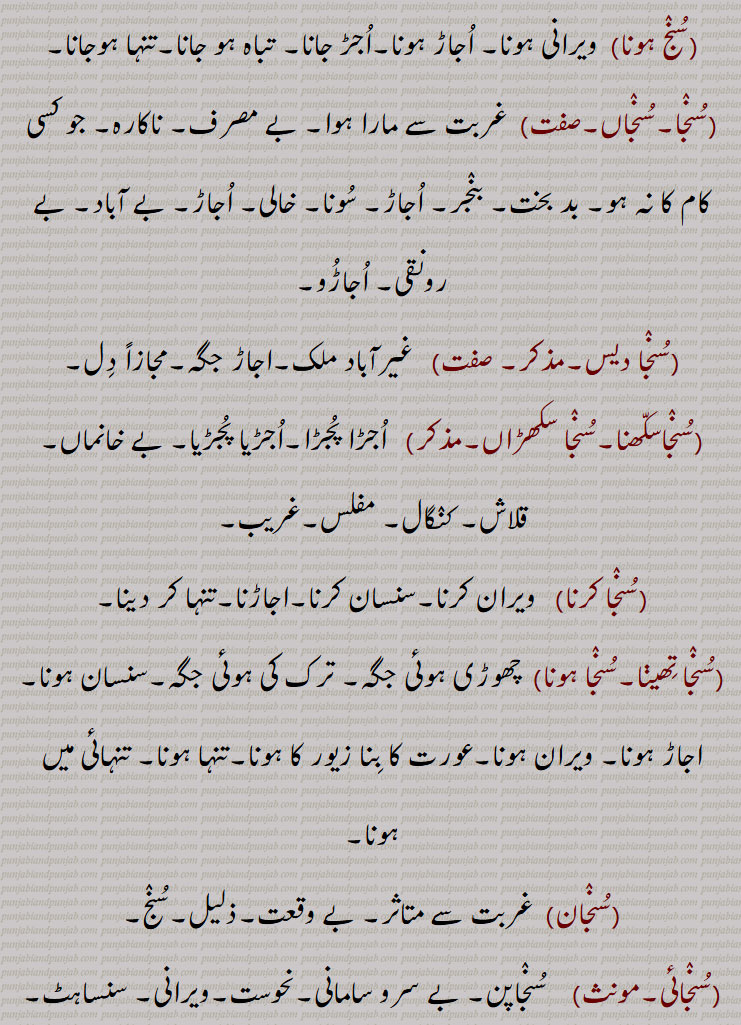 (سُنڄ ہونا) ویرانی ہونا۔ اُجاڑ ہونا۔اُجڑ جانا۔ تباہ ہو جانا۔تنہا ہوجانا۔
(سُنڄا۔سُنڄاں۔صفت) غربت سے مارا ہوا۔ بے مصرف۔ ناکارہ۔ جو کسی
کام کا نہ ہو۔ بد بخت۔ بنڄر۔ اُجاڑ۔ سُونا۔ خالی۔ اُجاڑ۔ بے آباد۔ بے
رونقی۔ اُجاڑُو۔
(سُنڄا دیس۔مذکر۔ صفت) غیرآباد ملک۔اجاڑ جگہ۔مجازاً دِل۔
(سُنڄاسکّھنا۔سُنڄا سکھڑاں۔مذکر) اُجڑا پُجڑا۔اُجڑیا پُجڑیا۔ بے خانماں۔
قلاش۔ کنگال۔ مفلس۔غریب۔
(سُنڄا کرنا) ویران کرنا۔سنسان کرنا۔اجاڑنا۔تنہا کر دینا۔
(سُنڄا تِھینا۔سُنڄا ہونا) چھوڑی ہوئی جگہ۔ ترک کی ہوئی جگہ۔سنسان ہونا۔
اجاڑ ہونا۔ ویران ہونا۔عورت کا بِنا زیور کا ہونا۔تنہا ہونا۔ تنہائی میں
ہونا۔
(سُنڄان) غربت سے متاثر۔ بے وقعت۔ذلیل۔سُنڄ۔
(سُنڄائی۔مونث) سُنڄاپن۔ بے سرو سامانی۔نحوست۔ویرانی۔ سنساہٹ۔